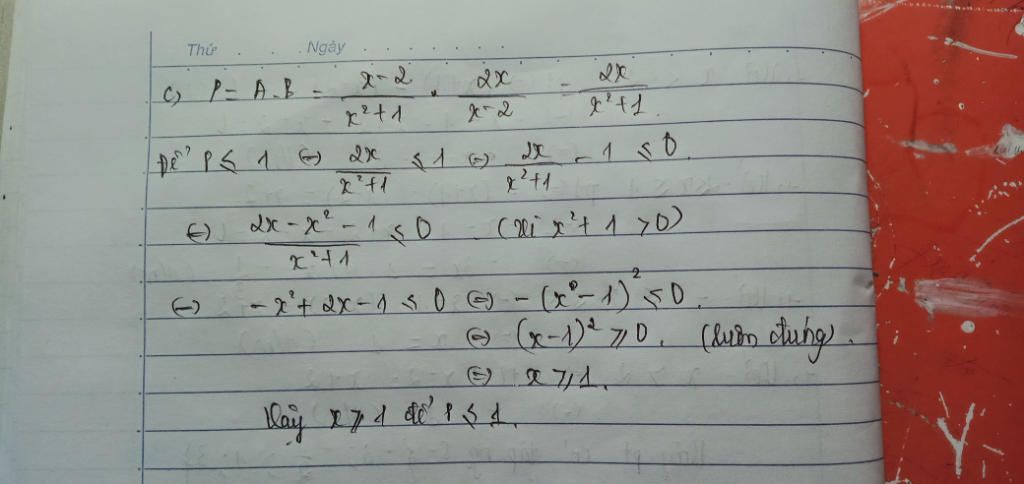 Thứ . . . Ngày . . . . . . .
c) P = A.B = \frac{x-2}{x^2+1} . \frac{2x}{x-2} = \frac{2x}{x^2+1}
Để P ≤ 1 ⇔ \frac{2x}{x^2+1} ≤ 1 ⇔ \frac{2x}{x^2+1} - 1 ≤ 0.
⇔ \frac{2x-x^2-1}{x^2+1} ≤ 0 (Vì x^2+1 > 0)
⇔ -x^2+2x-1 ≤ 0 ⇔ -(x-1)^2 ≤ 0.
⇔ (x-1)^2 ≥ 0. (luôn đúng).
⇔ x ≥ 1.
Vậy x ≥ 1 để P ≤ 1.